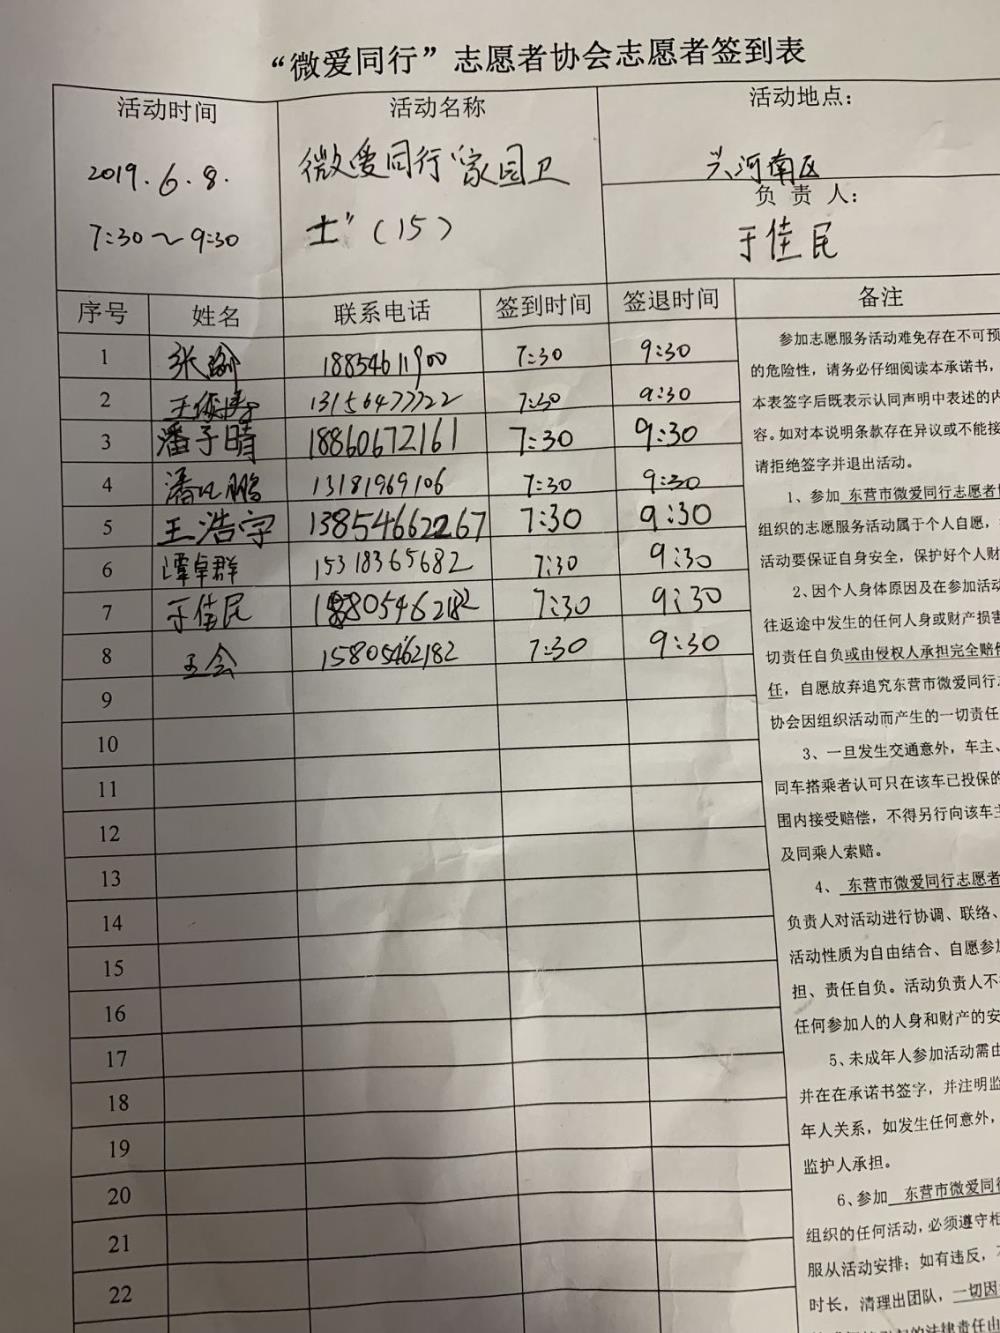 “微爱同行”志愿者协会志愿者签到表
活动时间
2019.6.8.
7:30～9:30
活动名称
微爱同行“家园卫
士”（15）
活动地点：
兴河南区
负 责 人：
于佳民
序号 姓名 联系电话 签到时间 签退时间 备注
1 张 18854611900 7:30 9:30
2 王 13156477722 7:30 9:30
3 潘子晴 18860672161 7:30 9:30
4 潘 鹏 13181969106 7:30 9:30
5 王浩宇 13854662267 7:30 9:30
6 谭卓群 15318365682 7:30 9:30
7 于佳民 18805462182 7:30 9:30
8 王会 15805462182 7:30 9:30
9
10
11
12
13
14
15
16
17
18
19
20
21
22
参加志愿服务活动难免存在不可预
的危险性，请务必仔细阅读本承诺书，
本表签字后既表示认同声明中表述的内
容。如对本说明条款存在异议或不能接
请拒绝签字并退出活动。
1、参加 东营市微爱同行志愿者
组织的志愿服务活动属于个人自愿，
活动要保证自身安全，保护好个人财
2、因个人身体原因及在参加活动
往返途中发生的任何人身或财产损害
切责任自负或由侵权人承担完全赔偿
任，自愿放弃追究东营市微爱同行志
协会因组织活动而产生的一切责任
3、一旦发生交通意外，车主、
同车搭乘者认可只在该车已投保的
围内接受赔偿，不得另行向该车主
及同乘人索赔。
4、 东营市微爱同行志愿者
负责人对活动进行协调、联络、
活动性质为自由结合、自愿参加
担、责任自负。活动负责人不
任何参加人的人身和财产的安
5、未成年人参加活动需由
并在在承诺书签字，并注明监
年人关系，如发生任何意外，
监护人承担。
6、参加 东营市微爱同行
组织的任何活动，必须遵守相
服从活动安排；如有违反，
时长，清理出团队，一切因
的法律责任由